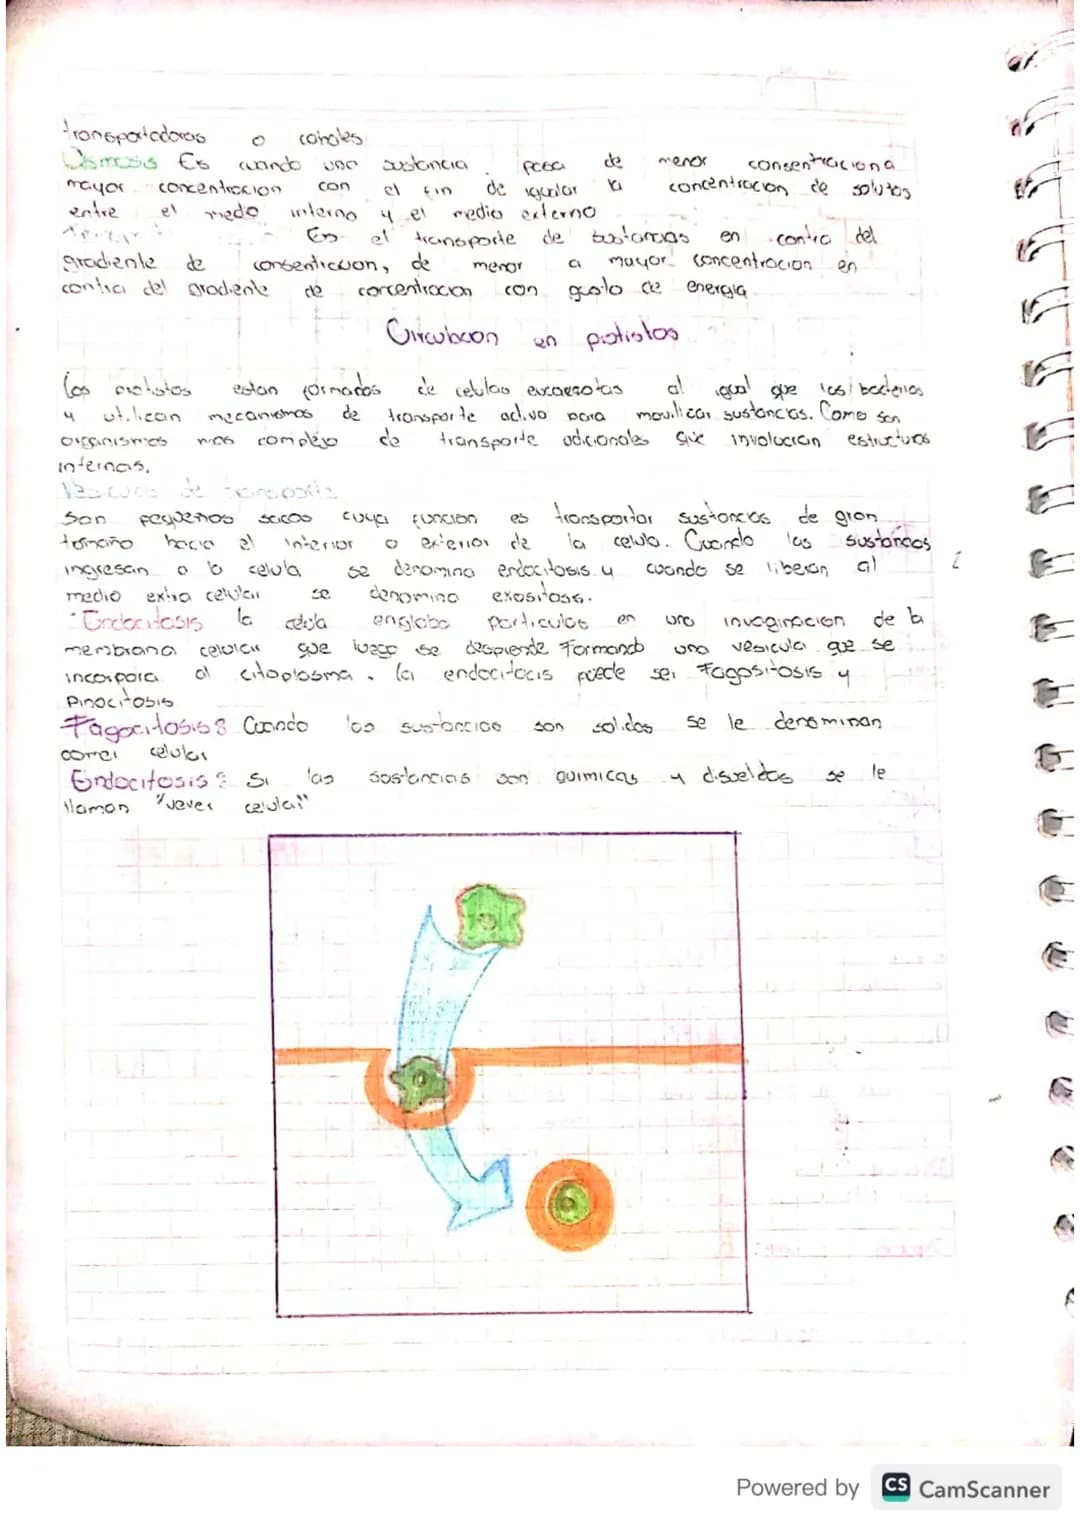 transportadoras o canales
Osmosis Es cuando una sustancia pasa de menor consentraciona
mayor concentracion con el fin de igualar la concentracion de solutos
entre el medio interno y el medio externo
Es el transporte de sustancias en contra del
gradiente de consentracion, de menor a mayor concentracion en
contra del gradiente de concentracion con gasto de energia
Circulacion en protistos
Los protistos estan formados de celulas eucariotas al igual que las bacterias
y utilizan mecanismos de transporte activo para movilicar sustancias. Como son
organismos mas complejo de transporte adicionales que involucran estructuras
internas.
Vesiculas de transporte
Son pequeños sacos cuya funcion es transportar sustancias de gran
tamaño hacia el interior o exterior de la celula. Cuando las sustancias
ingresan a la celula se denomina endocitosis y cuando se liberan al
medio extra celular se denomina exositosis.
Endocitosis la celula engloba particulas en una invaginacion de la
membrana celular que luego se desprende formando una vesicula que se
incorpora al citoplasma. la endocitocis puede ser Fagositosis y
Pinocitosis
Fagocitosis: Cuando las sustancias son solidas se le denominan
comer celular
Endocitosis: Si las sustancias son quimicas y disueldas se le
llaman "vever celular"
Powered by CS CamScanner